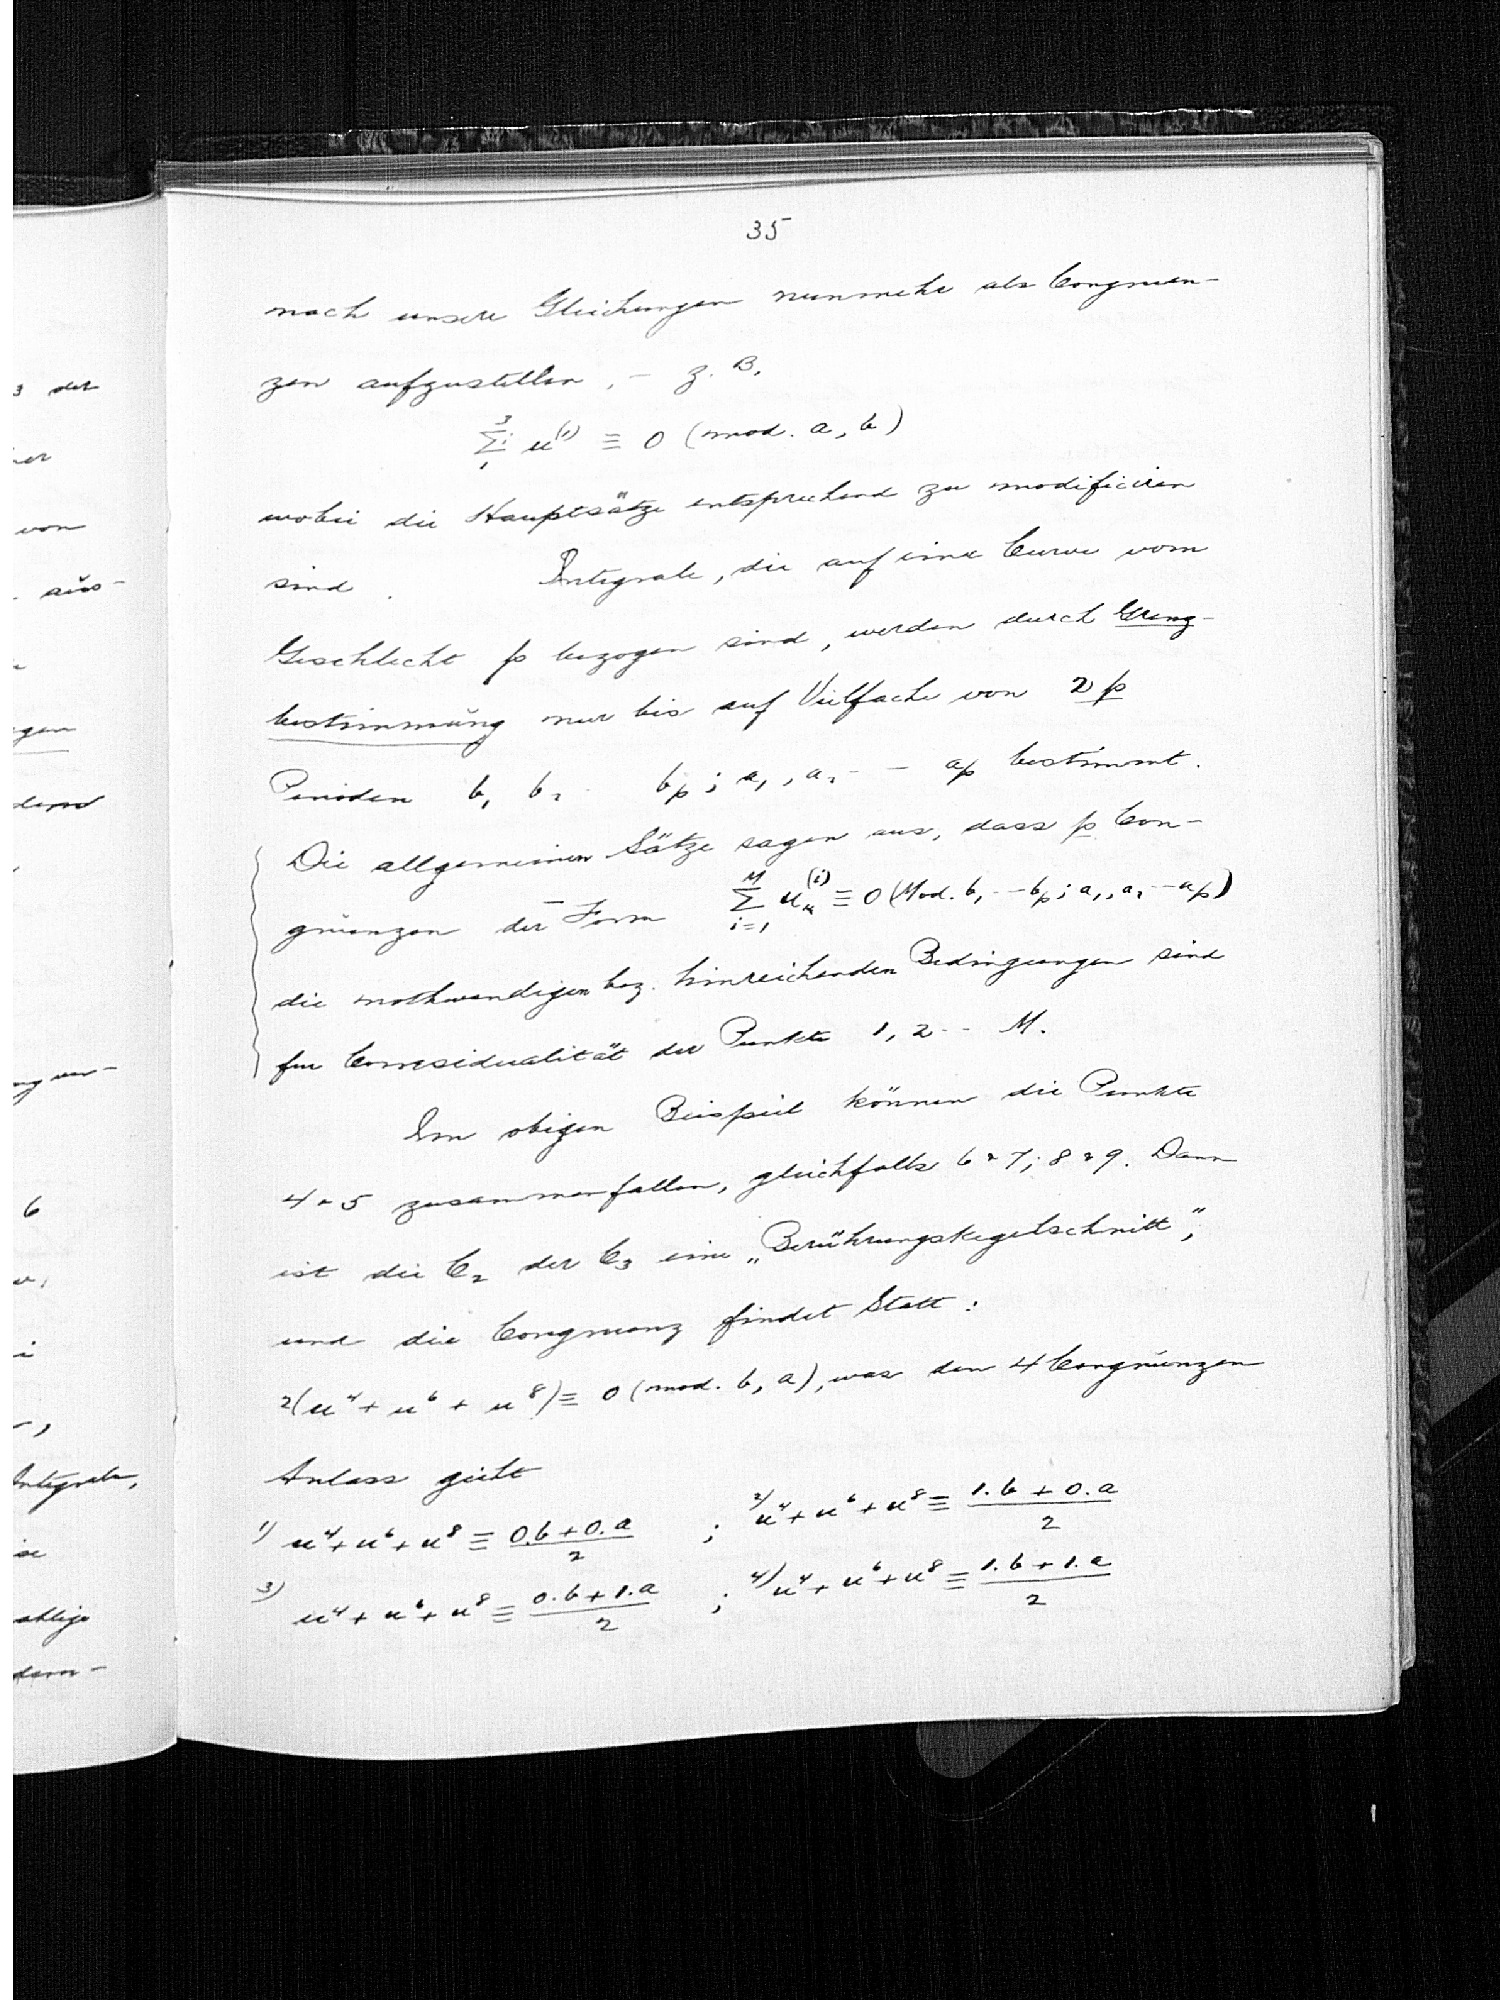 35
nach unsere Gleichungen nunmehr als Congruen-
zen aufzustellen, – z. B.
3 der
∑ᵢ u⁽ⁱ⁾ ≡ 0 (mod. a, b)
wobei die Hauptsätze entsprechend zu modificiren
von
sind. Integrale, die auf eine Curve vom
aus-
Geschlecht p bezogen sind, werden durch Grenz-
bestimmung nur bis auf Vielfache von 2p
gen
Perioden b₁ b₂ b_p; a₁, a₂ - - a_p bestimmt.
Die allgemeinen Sätze sagen aus, dass p Con-
gruenzen der Form ∑_{i=1}^{M} u_k^{(i)} ≡ 0 (Mod. b₁ - - b_p; a₁, a₂ - - a_p)
die nothwendigen bez. hinreichenden Bedingungen sind
fur Corresidualität der Punkte 1, 2 - - M.
Im obigen Beispiel können die Punkte
4 & 5 zusammenfallen, gleichfalls 6 & 7; 8 & 9. Dann
6
ist die C₂ der C₃ eine „Berührungskegelschnitt",
und die Congruenz findet Statt:
2(u⁴ + u⁶ + u⁸) ≡ 0 (mod. b, a), was den 4 Congruenzen
Anlass giebt
Integrale,
1) u⁴ + u⁶ + u⁸ ≡ (0.b + 0.a)/2 ; 2) u⁴ + u⁶ + u⁸ ≡ (1.b + 0.a)/2
3) u⁴ + u⁶ + u⁸ ≡ (0.b + 1.a)/2 ; 4) u⁴ + u⁶ + u⁸ ≡ (1.b + 1.a)/2